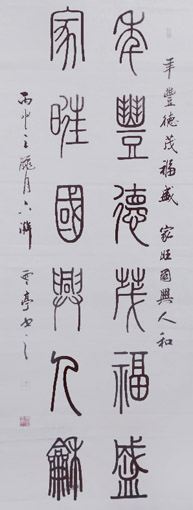 年豐德茂福盛 家旺國興人和
年豐德茂福盛
家旺國興人龢
丙申之臘月 亭書之